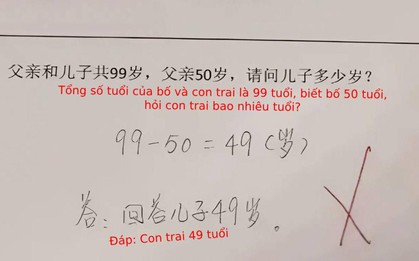 父亲和儿子共99岁，父亲50岁，请问儿子多少岁？
Tổng số tuổi của bố và con trai là 99 tuổi, biết bố 50 tuổi,
hỏi con trai bao nhiêu tuổi?
99-50=49(岁)
答：回答儿子49岁。
Đáp: Con trai 49 tuổi